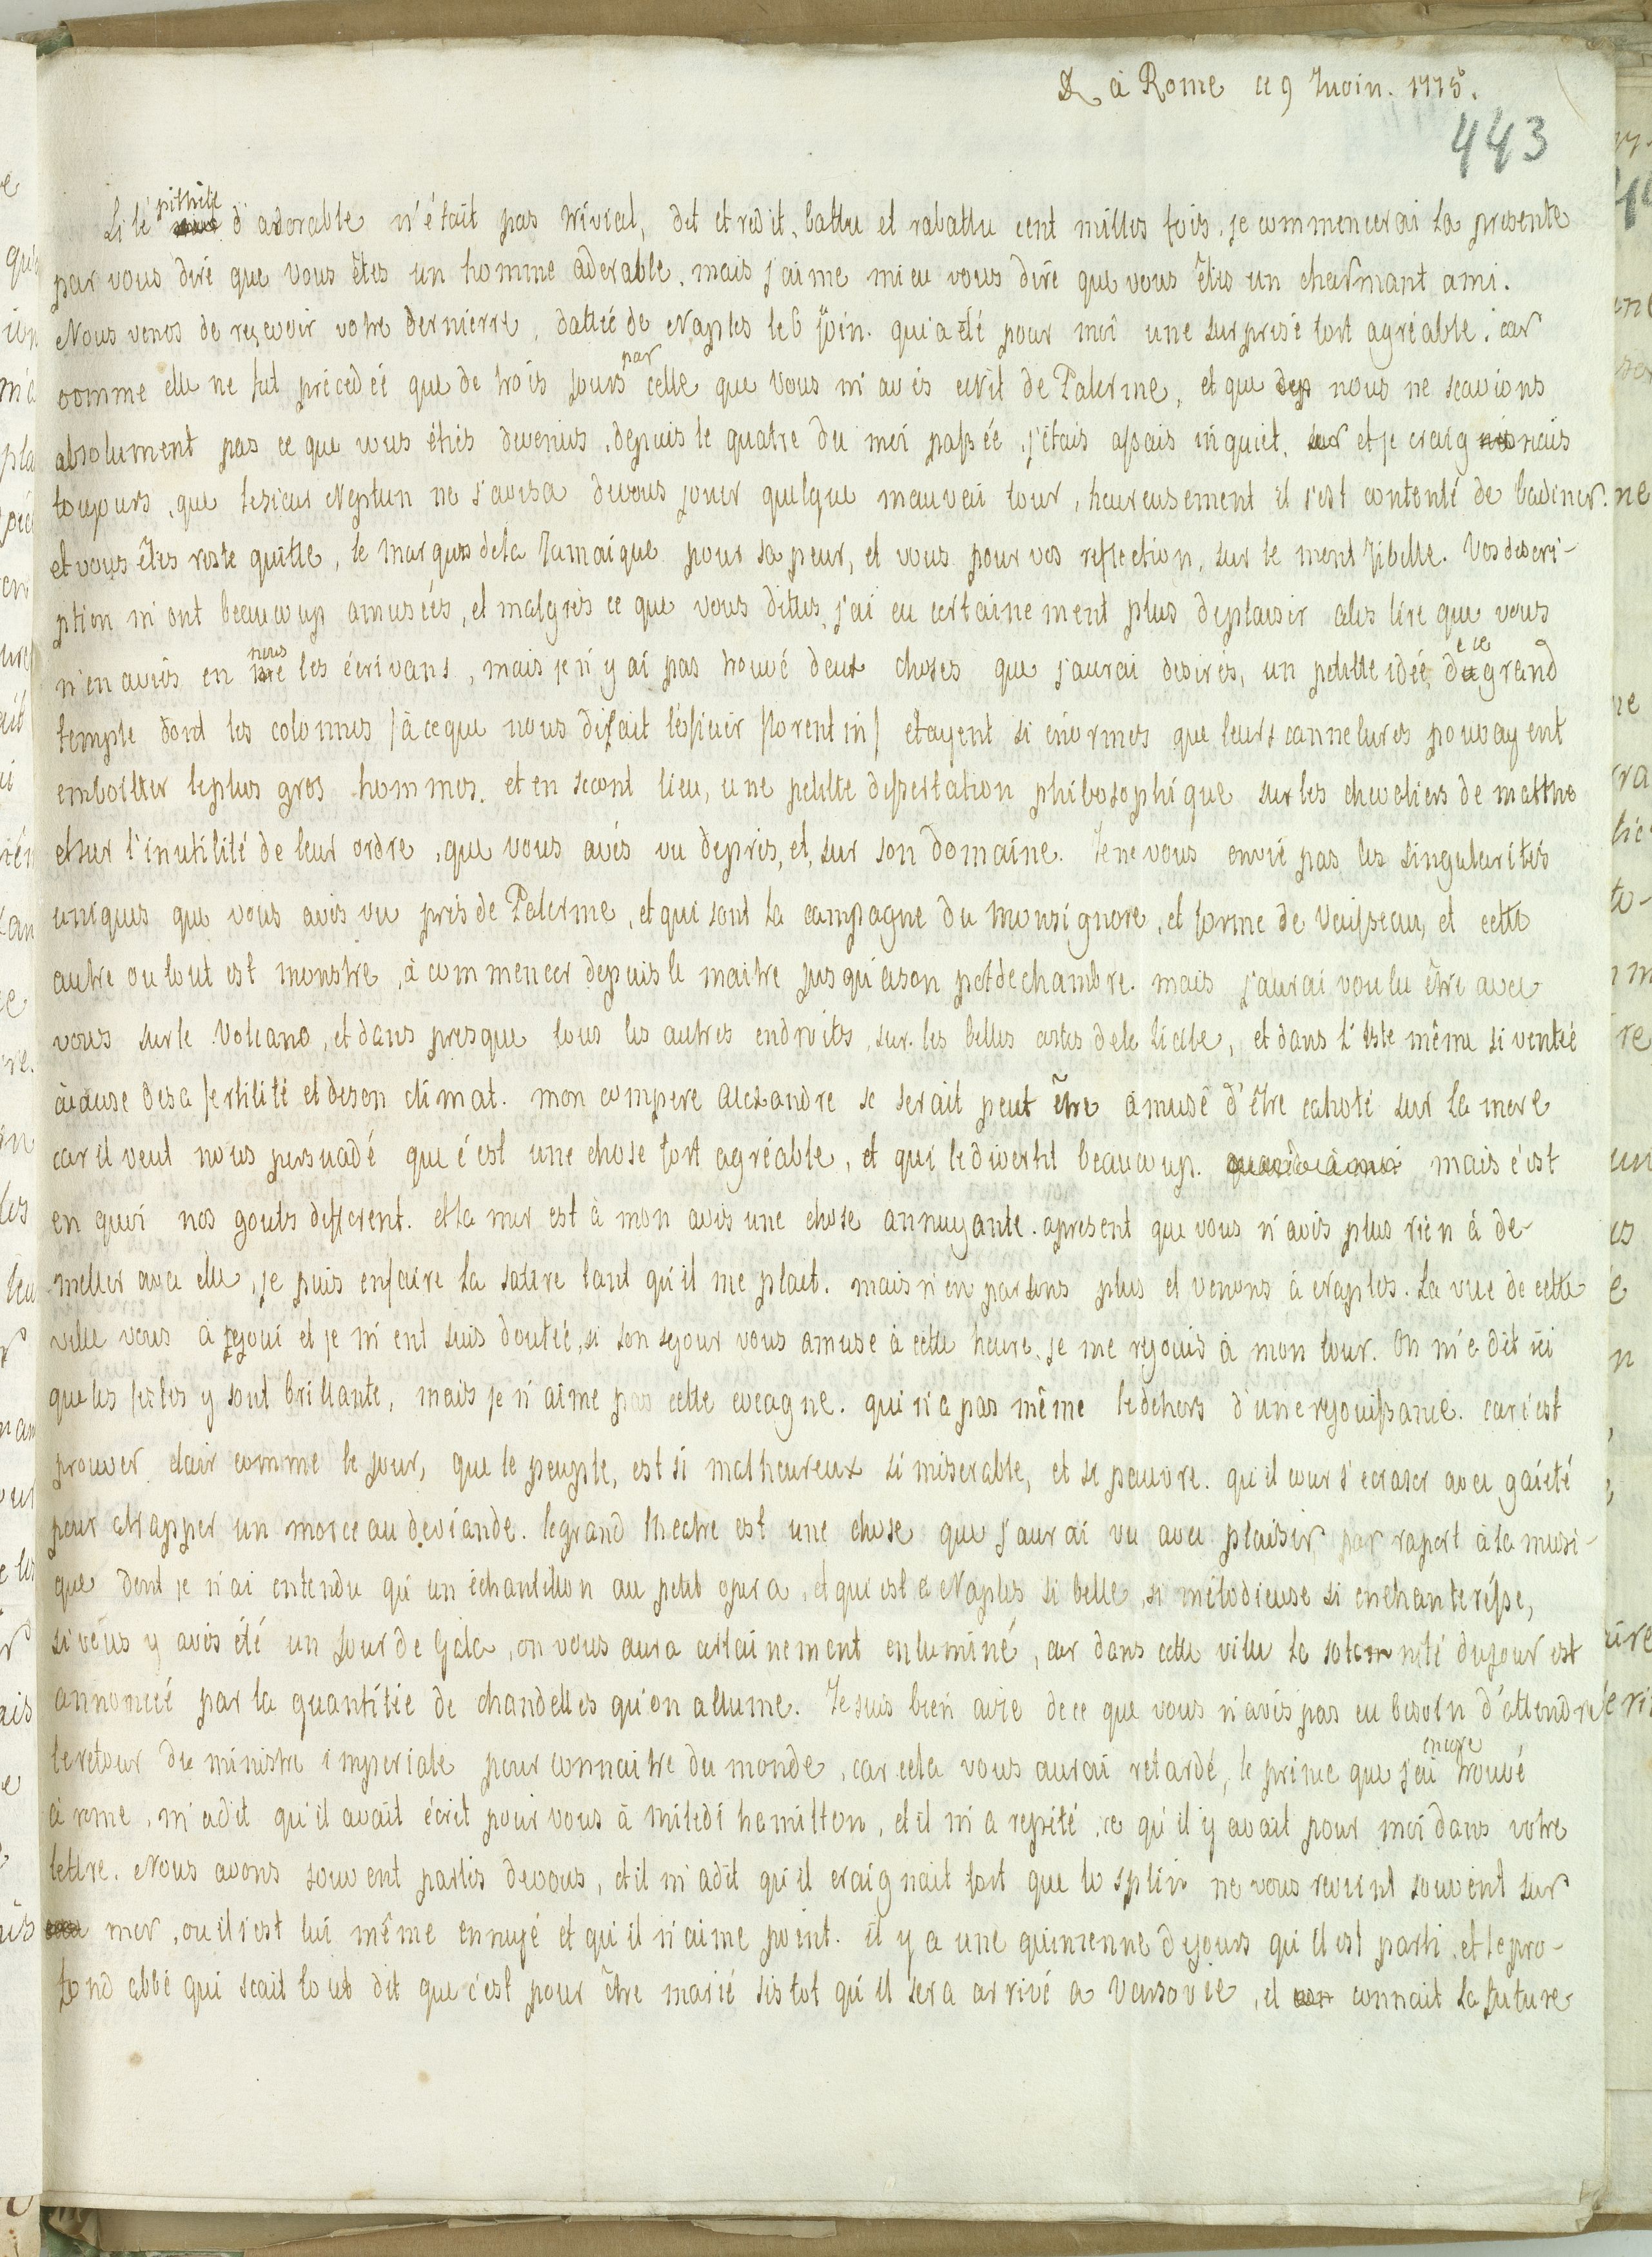 à Rome ce 9 Juoin. 1775.
443
Si lé pithéte d'adorable n'était pas trivial, dit et redit, battu et rabattu cent milles fois, je commencerai la presente
par vous diré que vous êtes un homme adorable, mais j'aime mieu vous diré que vous êtes un charmant ami.
Nous venos de reçevoir votre dernierre, dattée de Naples le 6 Join. qui a été pour moi une surprisé fort agréable, car
comme elle ne fut précedéé que de trois Jours par celle que vous m'avés ecrit de Palerme, et que nous ne scavions
absolument pas ce que vous étiés devenus, depuis le quatre du moi passée, j'étais assais inquiet, et je craignais
toujours, que lesieur Neptun ne s'avisa devous jouer quelque mauvai tour, heureusement il s'est contenté de badiner.
et vous êtes reste quitte, le marquis dela Jamaique pour sa peur, et vous pour vos reflection, sur le mont Jibelle. Vos descri-
ption m'ont beaucoup amusées, et malgrès ce que vous dittes, j'ai eu certainement plus deplaisir ales lire que vous
n'en aviés en nous les écrivans, mais je n'y ai pas trouvé deux choses que j'aurai desirés, un petitte idéé de ce grand
temple dont les colonnes /à ceque nous disait l'oficier florentin/ etayent si énormes que leurs cannelures pouvayent
emboitter leplus gros hommes. et en second lieu, une petitte dissertation philosophique sur les chevaliers de malthe
et sur l'inutilité de leur ordre, que vous avés vu deprès, et, sur son domaine. Je ne vous envié pas les singularités
uniques que vous avés vu près de Palerme, et qui sont la campagne du Monsignore, et forme de Vaisseau, et cette
autre ou tout est monstre, à commencer depuis le maitre jusqu'ason potdechambre. mais j'aurai voulu être avec
vous sur le Volcano, et dans presque tous les autres endroits, sur les belles cotes dela Sicille, et dans l'Isle même si ventéé
àcause desa fertilité et deson climat. mon compere Alexandre se serait peut être amusé d'être cahoté sur la mere
car il veut nous persuadé que c'est une chose fort agréable, et qui le divertit beaucoup. mais c'est
en quoi nos gouts different. et la mer est à mon avis une chose annuyante. apresent que vous n'avés plus rien à dé-
meller avec elle, je puis enfaire la satire tant qu'il me plait. mais n'en parlons plus et venons à Naples. La vue de cette
ville vous à rejoui et je m'ent suis doutéé, si son sejour vous amuse à cette heure, je me rejouis à mon tour. On m'a dit ici
queles festes y sont brillante, mais je n'aime pas cette cocagne. qui n'a pas même le dehors d'une rejouissance. car c'est
prouver clair comme le jour, que le peuple, est si malheureux si miserable, et si pauvre. qu'il cour s'ecraser avec gaieté
pour attrapper un morceau deviande. le grand theatre est une chose que j'aurai vu avec plaisir par raport à la musi-
que dont je n'ai entendu qu'un échantillon au petit opera, et qui est à Naples si belle, si mélodieuse si enchanterésse,
si vous y avés été un Jour de Gala, on vous aura certainement enluminé, car dans cette ville la solemnité dujour est
annoncéé par la quantitée de chandelles qu'on allume. Je suis bien aise de ce que vous n'avés pas eu besoin d'attendre
leretour du ministre imperiale pour connaitre du monde, car cela vous aurai retardé, le prince que j'ai encore trouvé
à rome, m'adit qu'il avait écrit pour vous à miledi hamilton, et il m'a repété, ce qu'il y avait pour moi dans votre
lettre. Nous avons souvent parlés devous, et il m'adit qu'il craignait fort que le splin ne vous revint souvent sur
mer, ou il s'est lui même ennuyé et qu'il n'aime point. il y a une quinzenne dejours qu'il est parti, et le pro-
fond abbé qui scait tout dit que c'est pour être marié sistot qu'il sera arrivé a Varsovie, il connait la future